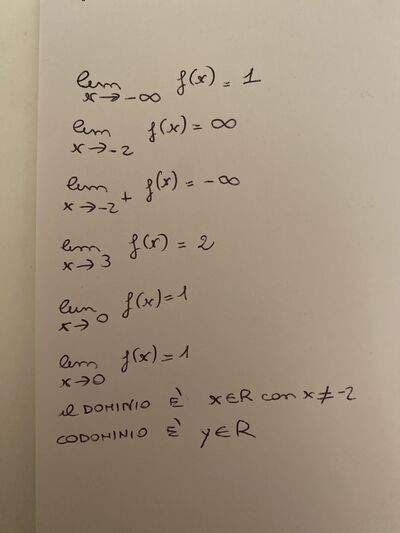 lim x→-∞ f(x) = 1
lim x→-2 f(x) = ∞
lim x→-2+ f(x) = -∞
lim x→3 f(x) = 2
lim x→0 f(x) = 1
lim x→0 f(x) = 1
il DOMINIO È x∈R con x≠-2
CODOMINIO È y∈R